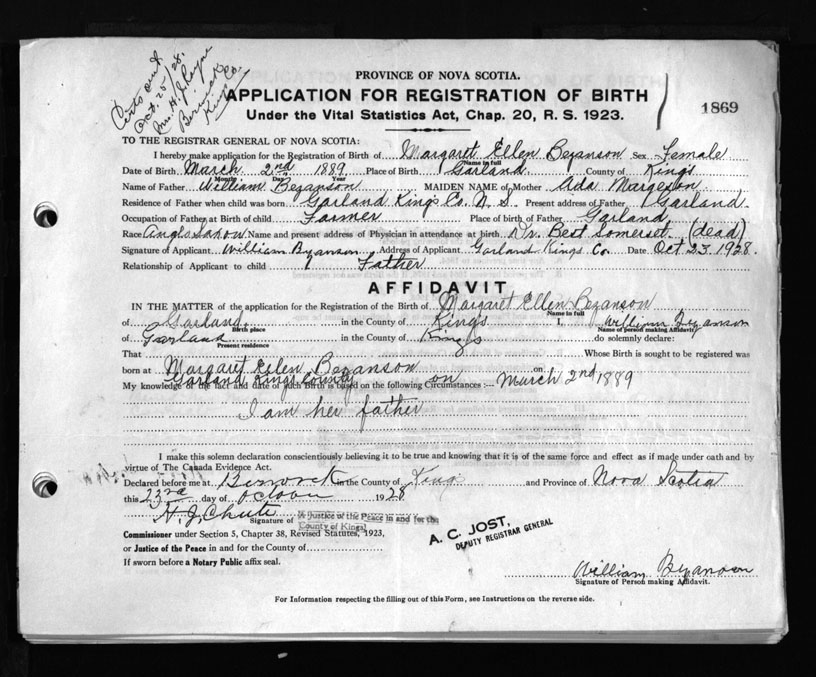 Certs out
Oct. 25/28.
Mrs. H. J.
Berwick
Kings Co
PROVINCE OF NOVA SCOTIA.
APPLICATION FOR REGISTRATION OF BIRTH
1869
Under the Vital Statistics Act, Chap. 20, R. S. 1923.
TO THE REGISTRAR GENERAL OF NOVA SCOTIA:
I hereby make application for the Registration of Birth of Margaret Ellen Bezanson Sex Female
Name in full
Date of Birth March 2nd 1889 Place of Birth Garland County of Kings
Month Day Year
Name of Father William Bezanson MAIDEN NAME of Mother Ada Margeson
Residence of Father when child was born Garland Kings Co. N. S. Present address of Father Garland
Occupation of Father at Birth of child Farmer Place of birth of Father Garland
Race Anglo Saxon Name and present address of Physician in attendance at birth Dr. Best Somerset (dead)
Signature of Applicant William Bezanson Address of Applicant Garland Kings Co. Date Oct 23 1928.
Relationship of Applicant to child Father
AFFIDAVIT
IN THE MATTER of the application for the Registration of the Birth of Margaret Ellen Bezanson
Name in full
of Garland in the County of Kings I, William Bezanson
Birth place Name of person making Affidavit
of Garland in the County of Kings do solemnly declare:
Present residence
That Margaret Ellen Bezanson Whose Birth is sought to be registered was
born at Garland Kings County on March 2nd 1889
My knowledge of the fact and date of such Birth is based on the following Circumstances:—
I am her father
I make this solemn declaration conscientiously believing it to be true and knowing that it is of the same force and effect as if made under oath and by
virtue of The Canada Evidence Act.
Declared before me at Berwick in the County of Kings and Province of Nova Scotia
this 23rd day of October 1928
H. J. Chute
Signature of A Justice of the Peace in and for the
County of Kings
Commissioner under Section 5, Chapter 38, Revised Statutes, 1923,
or Justice of the Peace in and for the County of
If sworn before a Notary Public affix seal.
A. C. JOST,
DEPUTY REGISTRAR GENERAL
William Bezanson
Signature of Person making Affidavit.
For Information respecting the filling out of this Form, see Instructions on the reverse side.